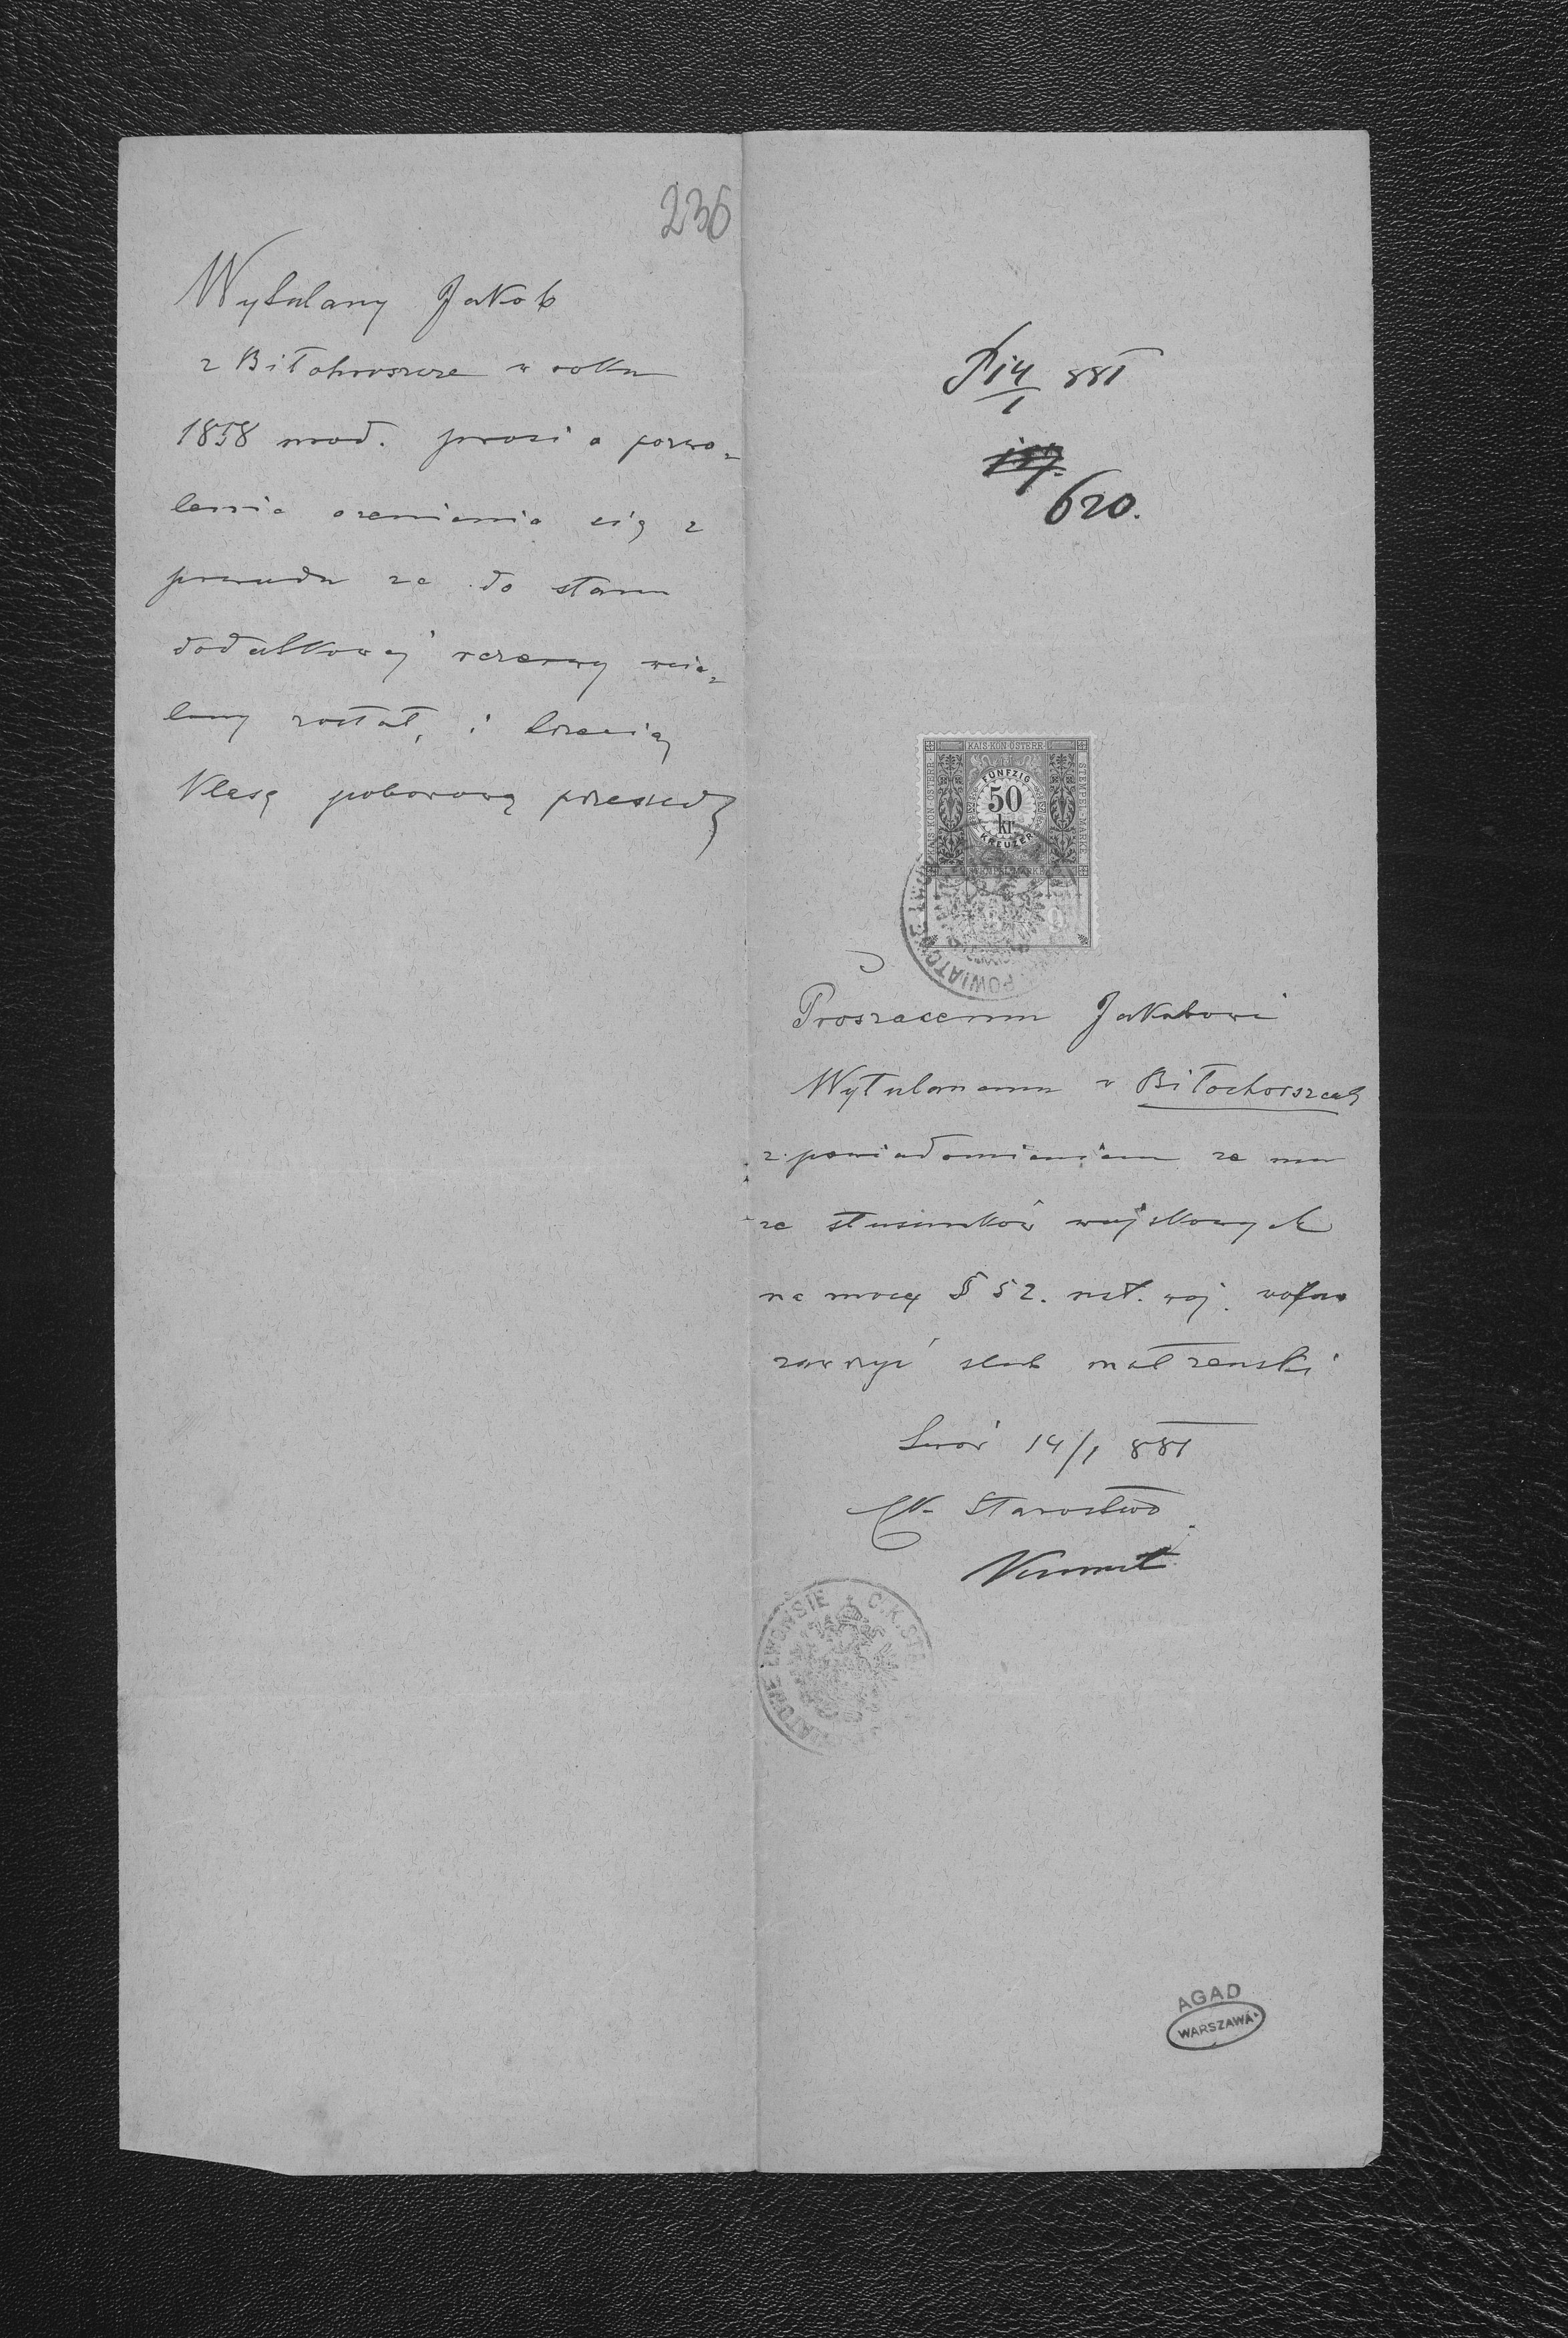 236
Wytulany Jakob
z Biłohorszcze w roku
1858 urod. prosi o pozwo-
lenie ożenienia się z
powodu że do stanu
dodatkowej rezerwy wcie-
lony został, i trzecią
klasę poborową przeszedł
P 14/1 881
157.
620.
KAIS·KÖN·ÖSTERR·
KAIS·KÖN·ÖSTERR·
STEMPEL-MARKE
FÜNFZIG
50
kr
KREUZER
STEMPEL-MARKE
POWIATOWE LWOW
Proszacemu Jakubowi
Wytulanemu w Biłochorszczach
z powiadomieniem że mu
ze stusunków wojskowych
na mocy § 52. ust. woj. wolno
zawrzyć slub małżenski
Lwów 14/1 881
CK Starostwo
C.K. STA
IATOWE LWOWSIE
AGAD
WARSZAWA